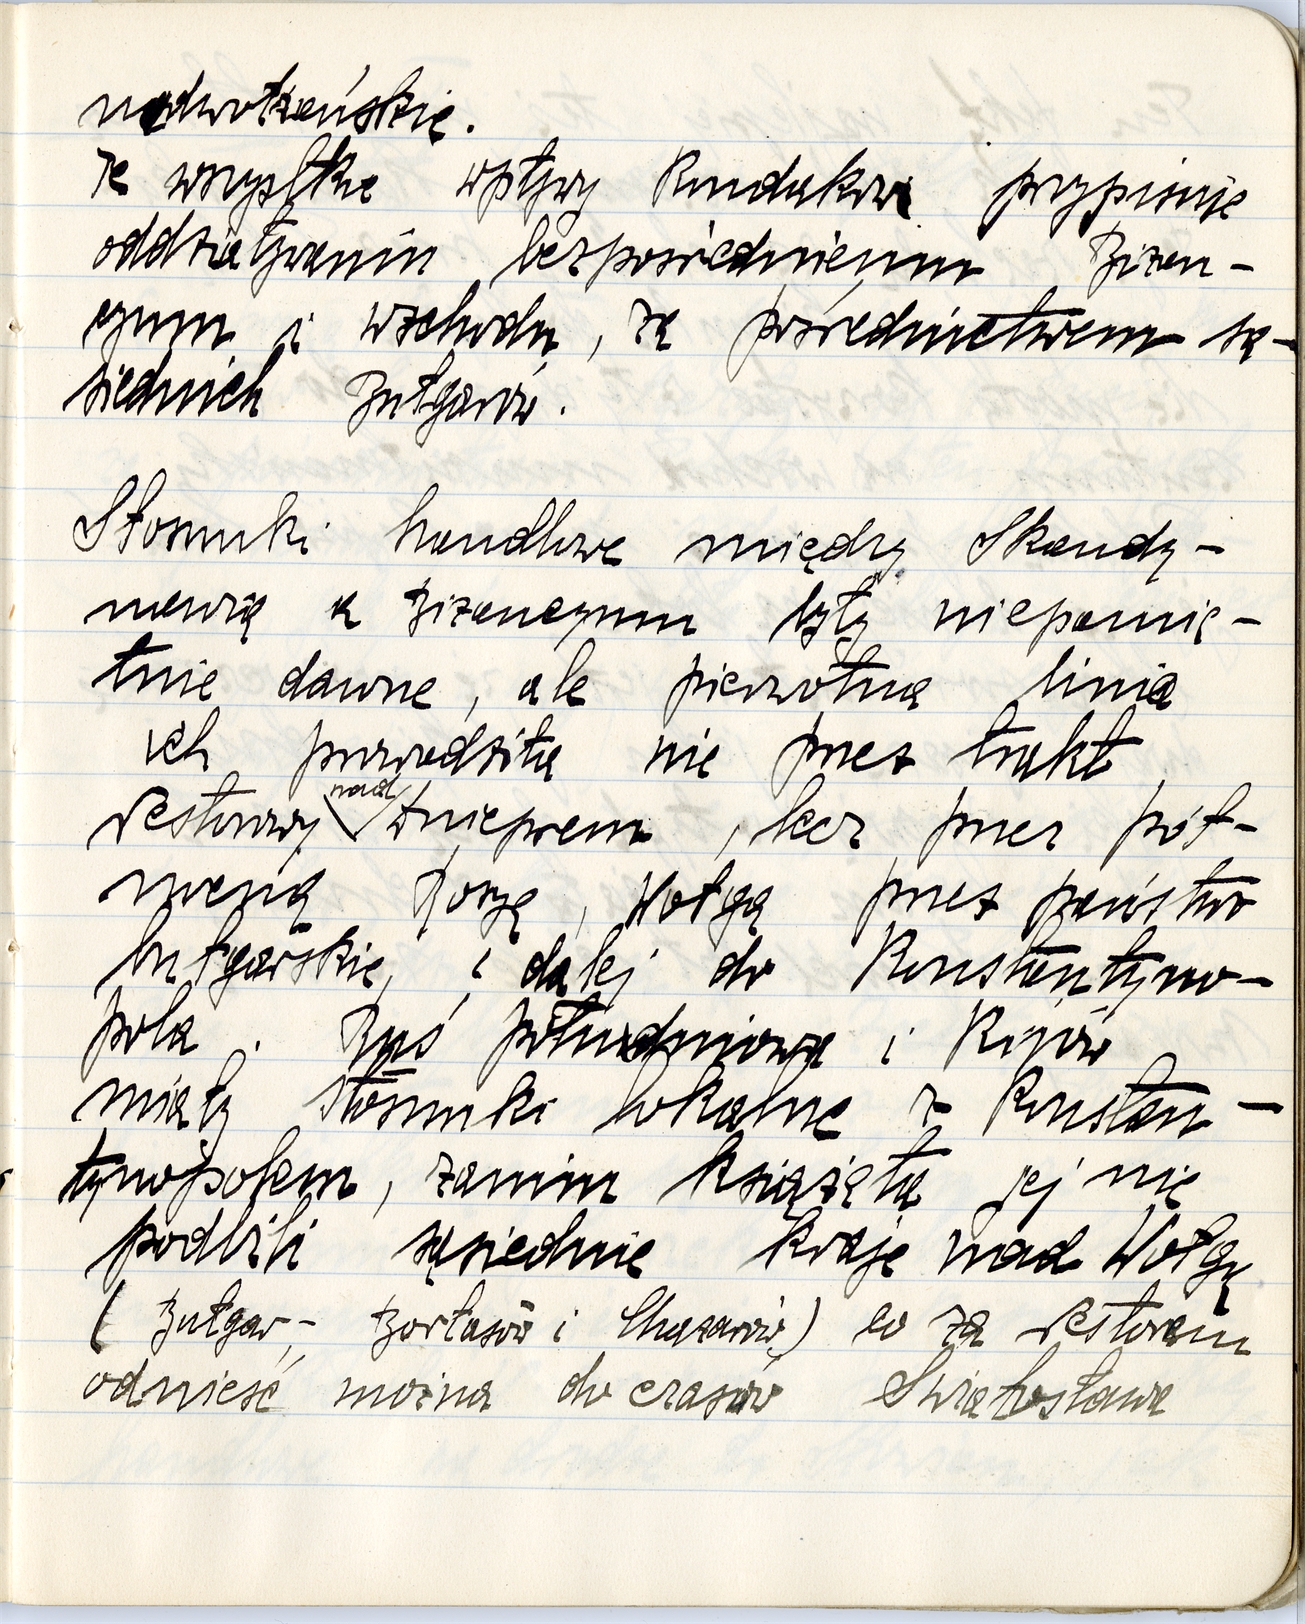 nadwołżańskie.
Te wszystkie wpływy Kondakow przypisuje
oddziaływaniu bezpośredniemu Bizan-
cyum i wschodu, za pośrednictwem są-
siednich Bułgarów.
Stosunki handlowe między Skandy-
nawią a Bizancyum były niepamię-
tnie dawne, ale pierwotna linia
ich prowadziła nie przez trakt
Nestorowy nad Dnieprem, lecz przez pół-
nocną Wołgą przez państwo
bułgarskie, i dalej do Konstantyno-
pola. Ruś południowa i Kijów
miały stosunki lokalne z Konstan-
tynopolem, zanim książęta jej nie
podbili sąsiednie kraje nad Wołgą
(Bułgar-, Bortasów i Chazarów) co za Nestorem
odnieść można do czasów Światosława